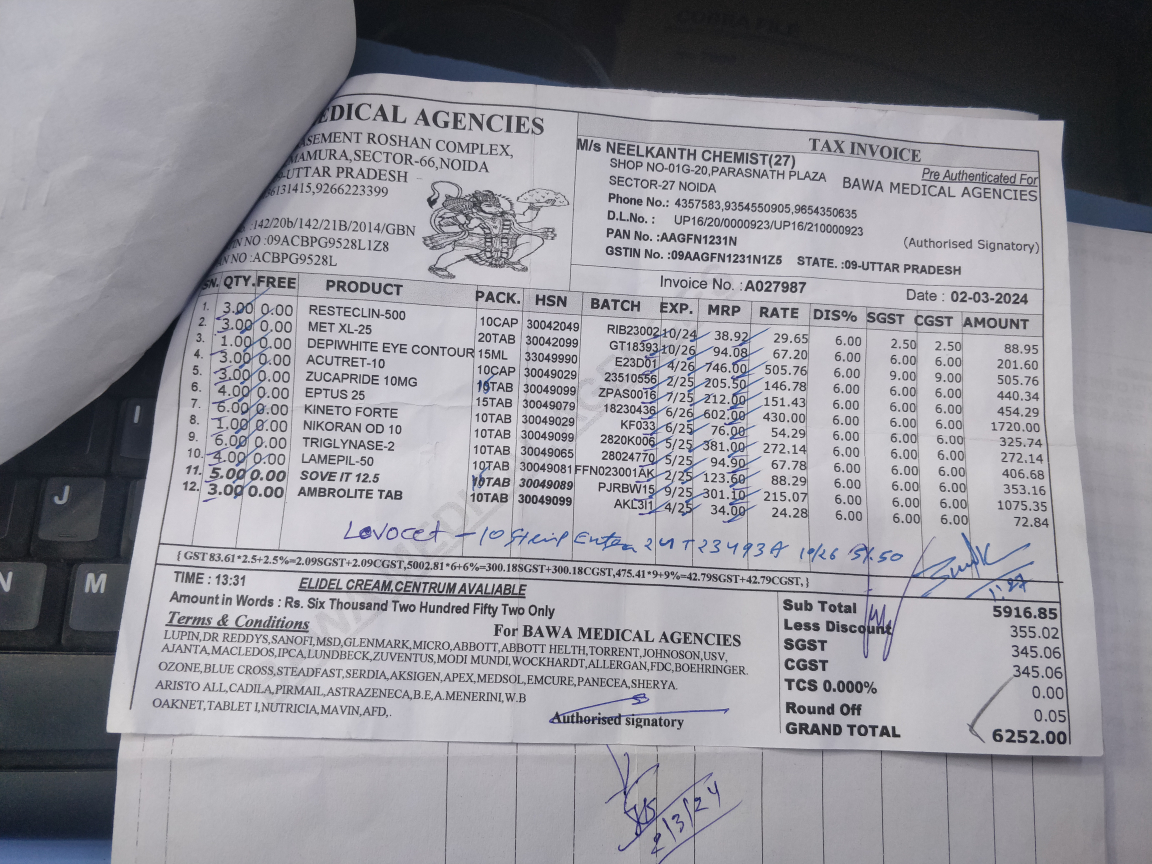 EDICAL AGENCIES
ASEMENT ROSHAN COMPLEX,
MAMURA,SECTOR-66,NOIDA
-UTTAR PRADESH
36131415,9266223399
:142/20b/142/21B/2014/GBN
IN NO :09ACBPG9528L1Z8
AN NO : ACBPG9528L
TAX INVOICE
M/s NEELKANTH CHEMIST(27)
SHOP NO-01G-20,PARASNATH PLAZA
SECTOR-27 NOIDA
Phone No.: 4357583,9354550905,9654350635
D.L.No. : UP16/20/0000923/UP16/210000923
PAN No. :AAGFN1231N
GSTIN No. :09AAGFN1231N1Z5 STATE. :09-UTTAR PRADESH
Pre Authenticated For
BAWA MEDICAL AGENCIES
(Authorised Signatory)
Invoice No. :A027987 Date : 02-03-2024
SN. QTY. FREE PRODUCT PACK. HSN BATCH EXP. MRP RATE DIS% SGST CGST AMOUNT
1. 3.00 0.00 RESTECLIN-500 10CAP 30042049 RIB23002 10/24 38.92 29.65 6.00 2.50 2.50 88.95
2. 3.00 0.00 MET XL-25 20TAB 30042099 GT18393 10/26 94.08 67.20 6.00 6.00 6.00 201.60
3. 1.00 0.00 DEPIWHITE EYE CONTOUR 15ML 33049990 E23D01 4/26 746.00 505.76 6.00 9.00 9.00 505.76
4. 3.00 0.00 ACUTRET-10 10CAP 30049029 23510556 2/25 205.50 146.78 6.00 6.00 6.00 440.34
5. 3.00 0.00 ZUCAPRIDE 10MG 10TAB 30049099 ZPAS0016 7/25 212.00 151.43 6.00 6.00 6.00 454.29
6. 4.00 0.00 EPTUS 25 15TAB 30049079 18230436 6/26 602.00 430.00 6.00 6.00 6.00 1720.00
7. 6.00 0.00 KINETO FORTE 10TAB 30049029 KF033 6/25 76.00 54.29 6.00 6.00 6.00 325.74
8. 1.00 0.00 NIKORAN OD 10 10TAB 30049099 2820K006 5/25 381.00 272.14 6.00 6.00 6.00 272.14
9. 6.00 0.00 TRIGLYNASE-2 10TAB 30049065 28024770 5/25 94.90 67.78 6.00 6.00 6.00 406.68
10. 4.00 0.00 LAMEPIL-50 10TAB 30049081 FFN023001AK 2/25 123.60 88.29 6.00 6.00 6.00 353.16
11. 5.00 0.00 SOVE IT 12.5 10TAB 30049089 PJRBW15 9/25 301.10 215.07 6.00 6.00 6.00 1075.35
12. 3.00 0.00 AMBROLITE TAB 10TAB 30049099 AKL3I1 4/25 34.00 24.28 6.00 6.00 6.00 72.84
Lovocet - 10 Strip 10/26
{ GST 83.61*2.5+2.5%=2.09SGST+2.09CGST,5002.81*6+6%=300.18SGST+300.18CGST,475.41*9+9%=42.79SGST+42.79CGST, }
TIME : 13:31 ELIDEL CREAM,CENTRUM AVALIABLE
Amount in Words : Rs. Six Thousand Two Hundred Fifty Two Only
Terms & Conditions For BAWA MEDICAL AGENCIES
LUPIN,DR REDDYS,SANOFI,MSD,GLENMARK,MICRO,ABBOTT,ABBOTT HELTH,TORRENT,JOHNOSON,USV,
AJANTA,MACLEDOS,IPCA,LUNDBECK,ZUVENTUS,MODI MUNDI,WOCKHARDT,ALLERGAN,FDC,BOEHRINGER.
OZONE,BLUE CROSS,STEADFAST,SERDIA,AKSIGEN,APEX,MEDSOL,EMCURE,PANECEA,SHERYA.
ARISTO ALL,CADILA,PIRMAIL,ASTRAZENECA,B.E,A.MENERINI,W.B
OAKNET,TABLET I,NUTRICIA,MAVIN,AFD,.
Authorised signatory
Sub Total 5916.85
Less Discount 355.02
SGST 345.06
CGST 345.06
TCS 0.000% 0.00
Round Off 0.05
GRAND TOTAL 6252.00
2/3/24
J
I
N
M